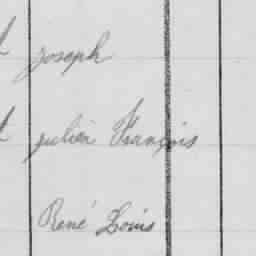 joseph
julien François
René Louis